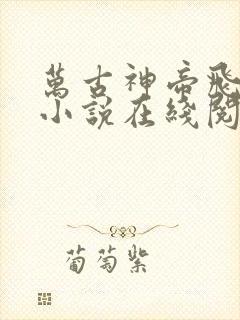 萬古神帝飛
小說在綫閱
葡萄紫